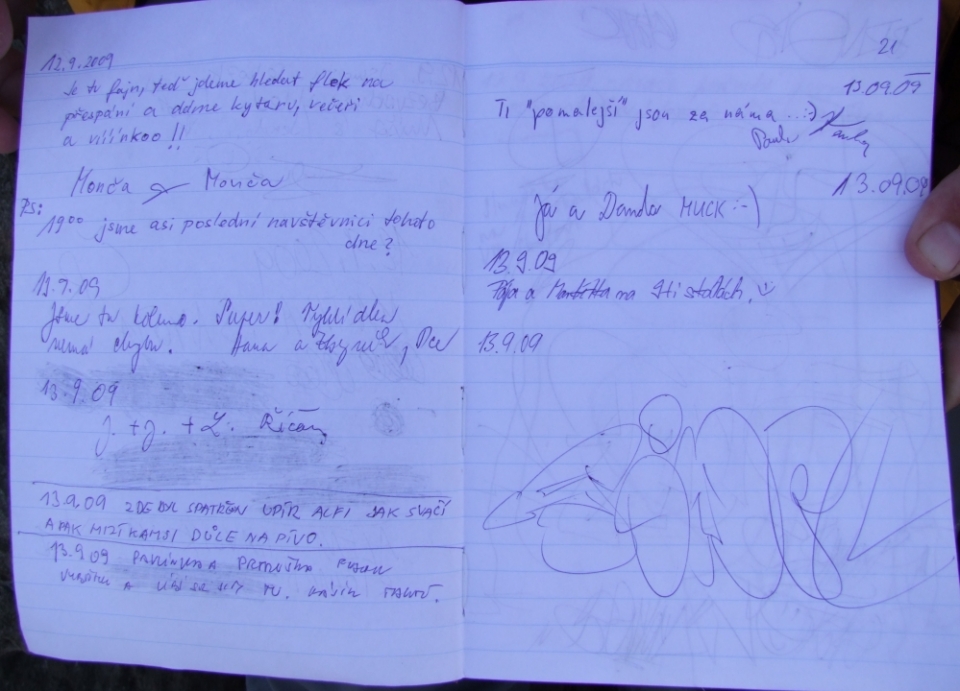 12.9.2009
Je tu fajn, teď jdeme hledat flek na
přespání a dáme kytaru, večeři
a višínkoo!!
Monča & Monča
PS:
19⁰⁰ jsme asi poslední navštěvníci tohoto
dne?
13.9.09
Jsme tu kolmo. Super! Vyhlídka
nemá chybu. Hana a Zbyněk,
13.9.09
J. + J. + Z. Říčany
13.9.09 ZDE BYL SPATŘEN UPÍR ALFI JAK SVAČÍ
A PAK MIZÍ KAMSI DŮLE NA PIVO.
13.9.09 PAVLÍNKA A
A TU.
21
13.09.09
Ti "pomalejší" jsou za náma ...:)
13.09.09
Já a Danda HUCK :-)
13.9.09
a na
13.9.09